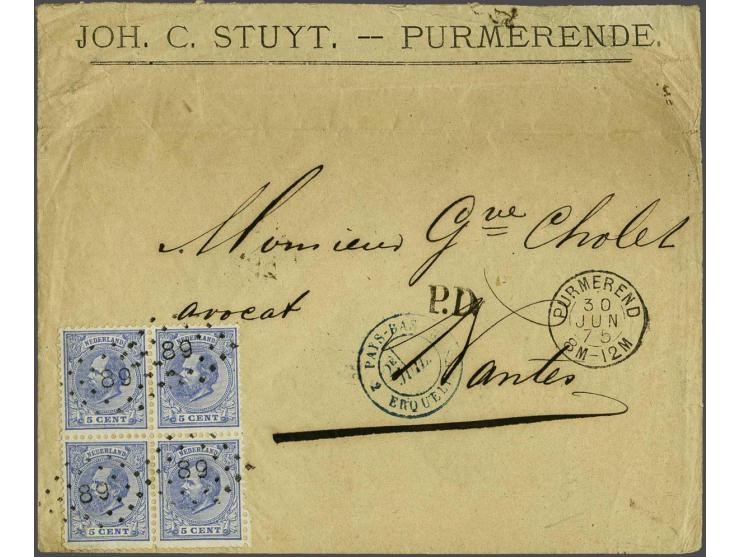 JOH. C. STUYT. — PURMERENDE.
Monsieur Gve Cholet
avocat
P.D.
Nantes
PURMEREND
30
JUN
75
8M-12M
2 PAYS-BAS
JUIL.
ERQUEL
NEDERLAND
5 CENT
89
NEDERLAND
5 CENT
89
NEDERLAND
5 CENT
89
NEDERLAND
5 CENT
89